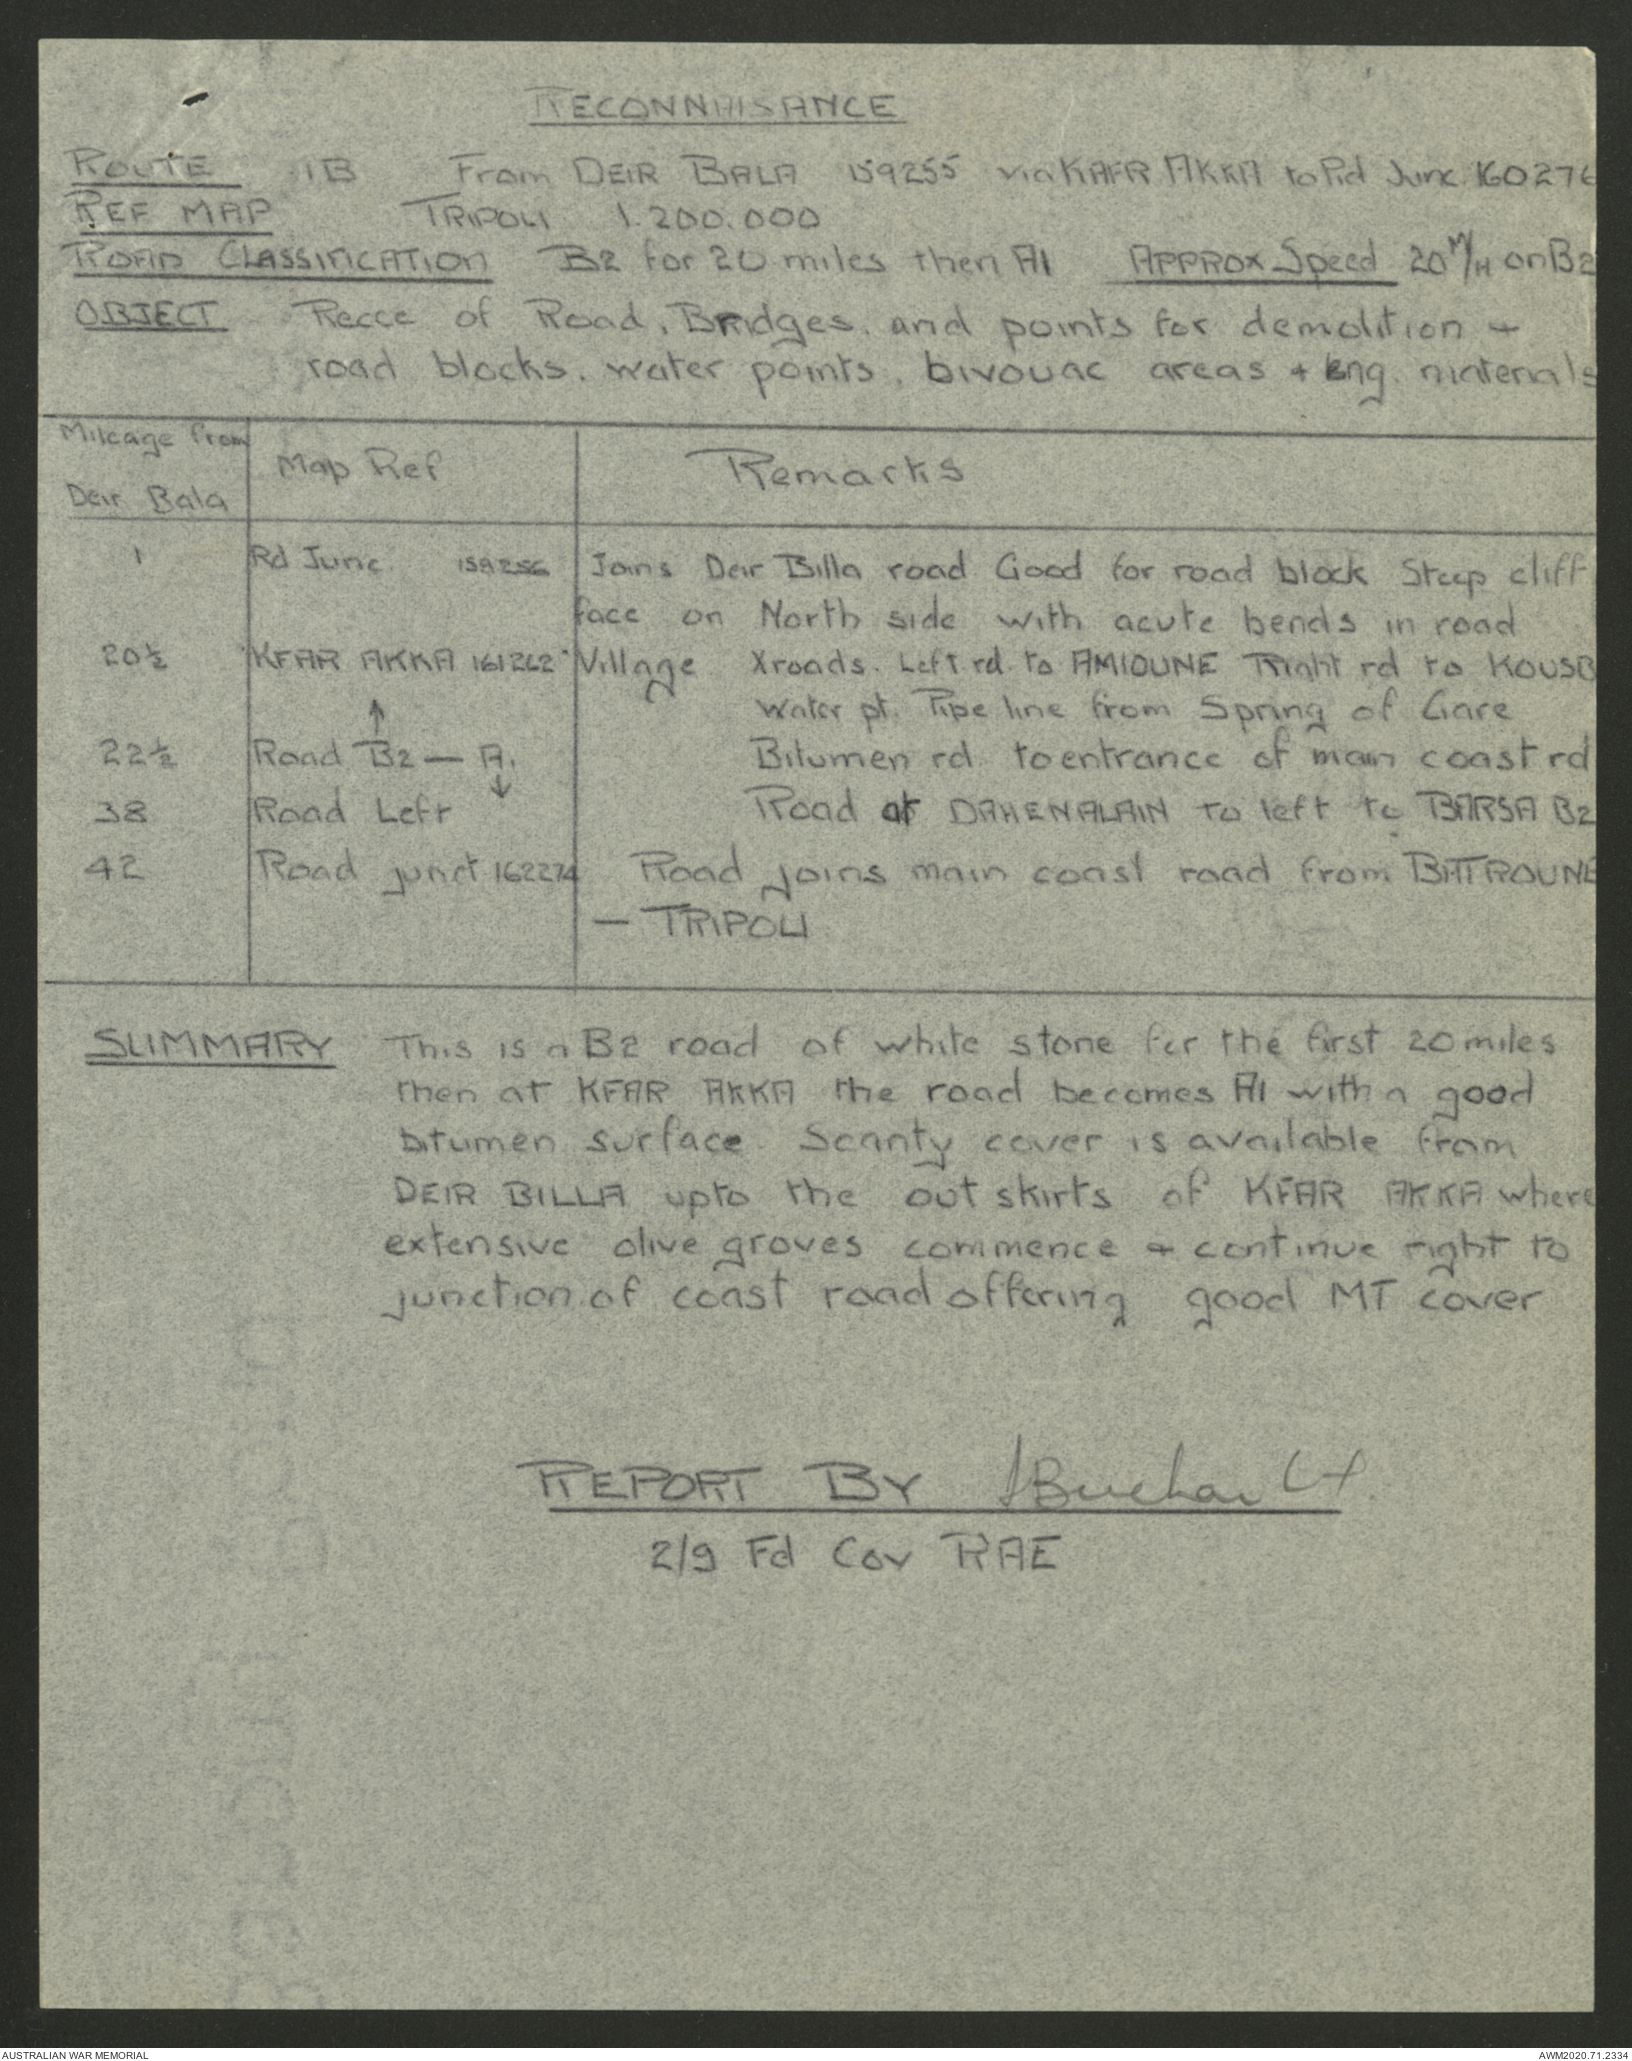 RECONNAISANCE
ROUTE 1B From DEIR BALA 159255 via KAFR AKKA to Rd Junc. 160276
REF MAP TRIPOLI 1.200.000
ROAD CLASSIFICATION B2 for 20 miles then A1 APPROX Speed 20 M/H on B2
OBJECT Recce of Road, Bridges, and points for demolition +
road blocks. water points, bivouac areas + Eng. materials
Mileage from
Deir Bala
Map Ref
Remarks
1 Rd Junc. 159256 Joins Deir Billa road Good for road block Steep cliff
face on North side with acute bends in road
20½ "KFAR AKKA 161262" Village Xroads. Left rd. to AMIOUNE Right rd to KOUSB
Water pt. Pipe line from Spring of Gare
22½ Road B2 — A1 Bitumen rd to entrance of main coast rd
38 Road Left Road at DAHENALAIN to left to BARSA B2
42 Road junct 162274 Road joins main coast road from BATTROUNE
— TRIPOLI
SUMMARY This is a B2 road of white stone for the first 20 miles
then at KFAR AKKA the road becomes A1 with a good
bitumen surface. Scanty cover is available from
DEIR BILLA upto the out skirts of KFAR AKKA where
extensive olive groves commence + continue right to
junction of coast road offering good MT cover
REPORT BY Lt.
2/9 Fd Coy RAE
AUSTRALIAN WAR MEMORIAL
AWM2020.71.2334